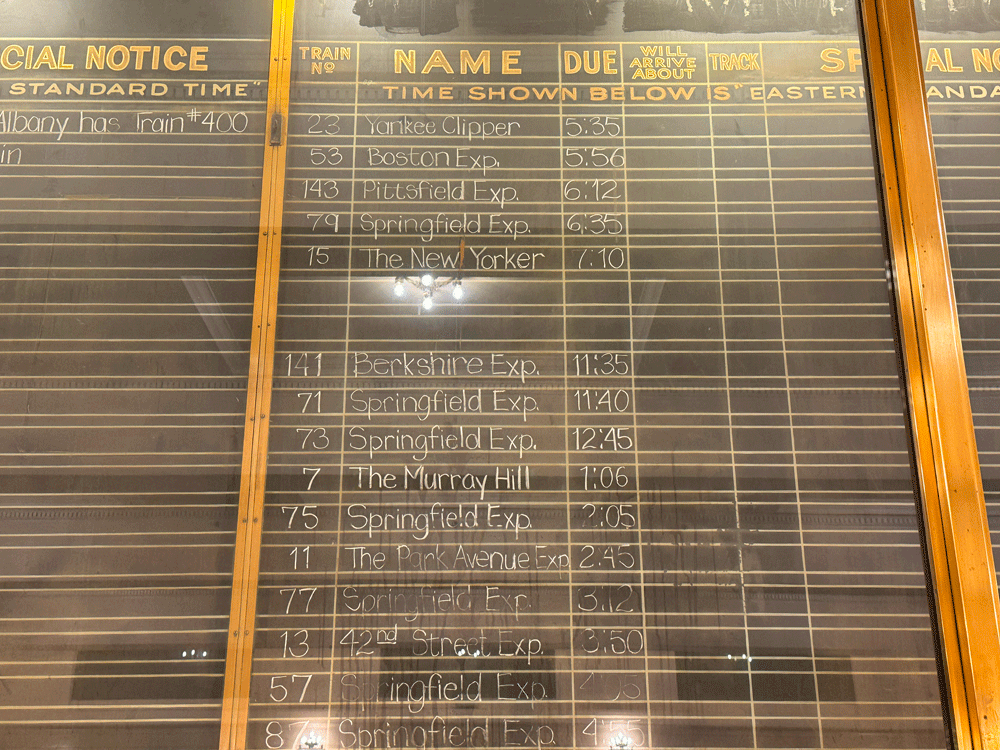 CIAL NOTICE
STANDARD TIME"
Albany has Train #400
in
TRAIN Nº NAME DUE WILL ARRIVE ABOUT TRACK SP AL NO
TIME SHOWN BELOW IS "EASTERN ANDA
23 Yankee Clipper 5:35
53 Boston Exp. 5:56
143 Pittsfield Exp. 6:12
79 Springfield Exp. 6:35
15 The New Yorker 7:10
141 Berkshire Exp. 11:35
71 Springfield Exp. 11:40
73 Springfield Exp. 12:45
7 The Murray Hill 1:06
75 Springfield Exp. 2:05
11 The Park Avenue Exp 2:45
77 Springfield Exp. 3:12
13 42nd Street Exp. 3:50
57 Springfield Exp.
87 Springfield Exp. 4:55